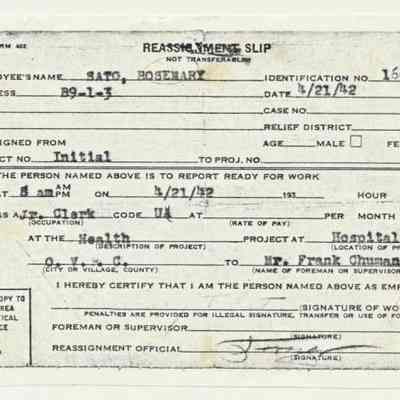 RM 402
REASSIGNMENT SLIP
NOT TRANSFERABLE
OYEE'S NAME SATO, ROSEMARY IDENTIFICATION NO. 16
ESS B9-1-3 DATE 4/21/42
CASE NO.
RELIEF DISTRICT
SIGNED FROM AGE MALE ☐ FE
CT NO. Initial TO PROJ. NO.
THE PERSON NAMED ABOVE IS TO REPORT READY FOR WORK
AT 8 am AM PM ON 4/21/42 193 HOUR
AS A Jr. Clerk CODE AT PER MONTH
(OCCUPATION) (RATE OF PAY)
AT THE Health PROJECT AT Hospital
(DESCRIPTION OF PROJECT) (LOCATION OF PR
O. V. C. TO Mr. Frank Chuman
(CITY OR VILLAGE, COUNTY) (NAME OF FOREMAN OR SUPERVISOR
I HEREBY CERTIFY THAT I AM THE PERSON NAMED ABOVE AS EMP
OPY TO
REA
TICAL
CE
(SIGNATURE OF WO
PENALTIES ARE PROVIDED FOR ILLEGAL SIGNATURE, TRANSFER OR USE OF FO
FOREMAN OR SUPERVISOR
(SIGNATURE)
REASSIGNMENT OFFICIAL
(SIGNATURE)